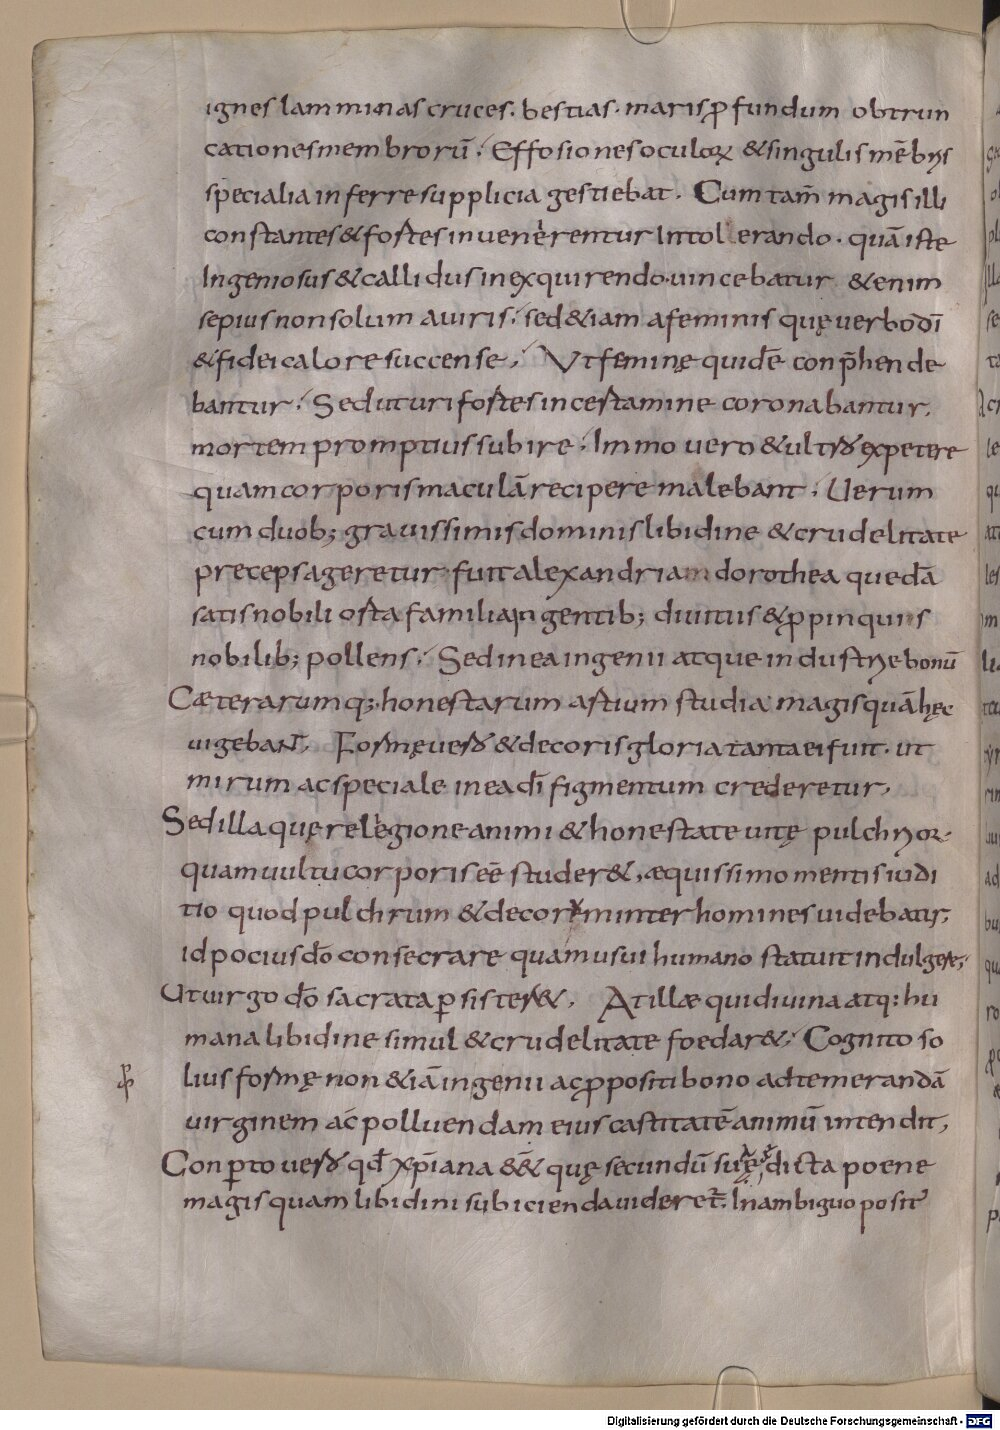 ignes lamminas cruces. bestias. maris ꝓfundum obtrun
cationes membrorū. Effosiones oculoꝝ & singulis mēbris
specialia inferre supplicia gestiebat. Cum tam̄ magis illi
constantes & fortes invenerentur Intollerando. quā iste
Ingeniosus & callidus in exquirendo. vincebatur & enim
sepius non solum a viris. sed & iam a feminis quę verbo dī
& fidei calore succense, Ut feminę quidē conp̄hende
bantur. Sed ut viri fortes in certamine coronabantur,
mortem promptius subire. Immo vero & ultro expetere
quam corporis maculā recipere malebant. Uerum
cum duob; gravissimis dominis libidine & crudelitate
preceps ageretur. fuit alexandriam dorothea quedā
satis nobili orta familia in gentib; divitiis & ꝓpinquiis
nobilib; pollens. Sed in ea ingenii atque industrie bonū
Cæterarumq; honestarum artium studia magis quā hęc
vigebaNT. Formę vero & decoris gloria tanta ei fuit. ut
mirum ac speciale in ea dī figmentum crederetur,
Sed illa quę relegione animi & honestate vitę pulchrior
quam vultu corporis eē studer&, æquissimo mentis iudi
tio quod pulchrum & decorum inter homines videbatur,
id pocius dō consecrare quam usui humano statuit indulgere,
Ut virgo dō sacrata ꝑsister&, At illæ qui divina atq: hu
mana libidine simul & crudelitate foedar&, Cognito so
lius formę non & iā ingenii ac ꝓpositi bono ad temerandā
virginem ac polluendam eius castitatē animū intendit,
Conꝑto vero qd̄ xp̄iana ēē & quę secundū suę dicta poene
magis quam libidini subicienda videret̄. In ambiguo posit᾽
Digitalisierung gefördert durch die Deutsche Forschungsgemeinschaft - DFG